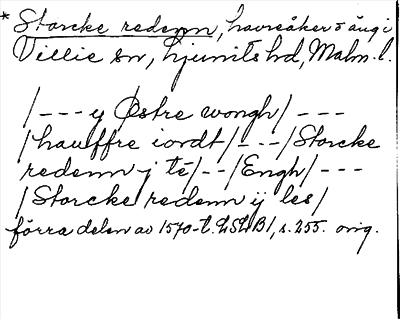 * Storcke redenn, havreåker o äng i
Villie sn, Ljunits hd, Malm. l.
/--- y Østre wongh/ ---
/hauffre iordt/---/Storcke
redenn j te/--/Engh/---
/Storcke redenn ij les/
förra delen av 1570-t. LSLB1, s. 255. orig.